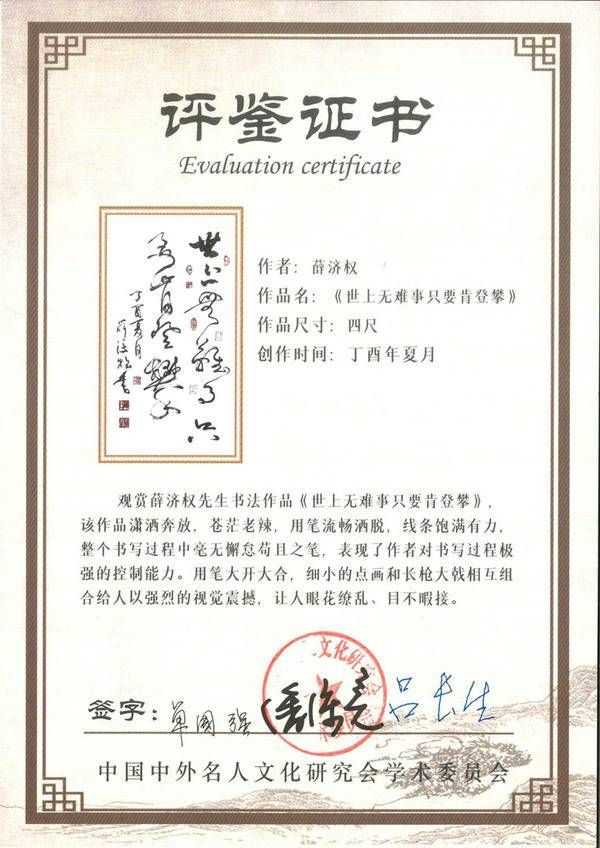 评鉴证书
Evaluation certificate
世上无难事只
要肯登攀
丁酉夏月
薛济权书
作者：薛济权
作品名：《世上无难事只要肯登攀》
作品尺寸：四尺
创作时间：丁酉年夏月
观赏薛济权先生书法作品《世上无难事只要肯登攀》，
该作品潇洒奔放，苍茫老辣，用笔流畅洒脱，线条饱满有力，
整个书写过程中毫无懈怠苟且之笔，表现了作者对书写过程极
强的控制能力。用笔大开大合，细小的点画和长枪大戟相互组
合给人以强烈的视觉震撼，让人眼花缭乱、目不暇接。
文化研究会
签字：单国强 吕长生
中国中外名人文化研究会学术委员会